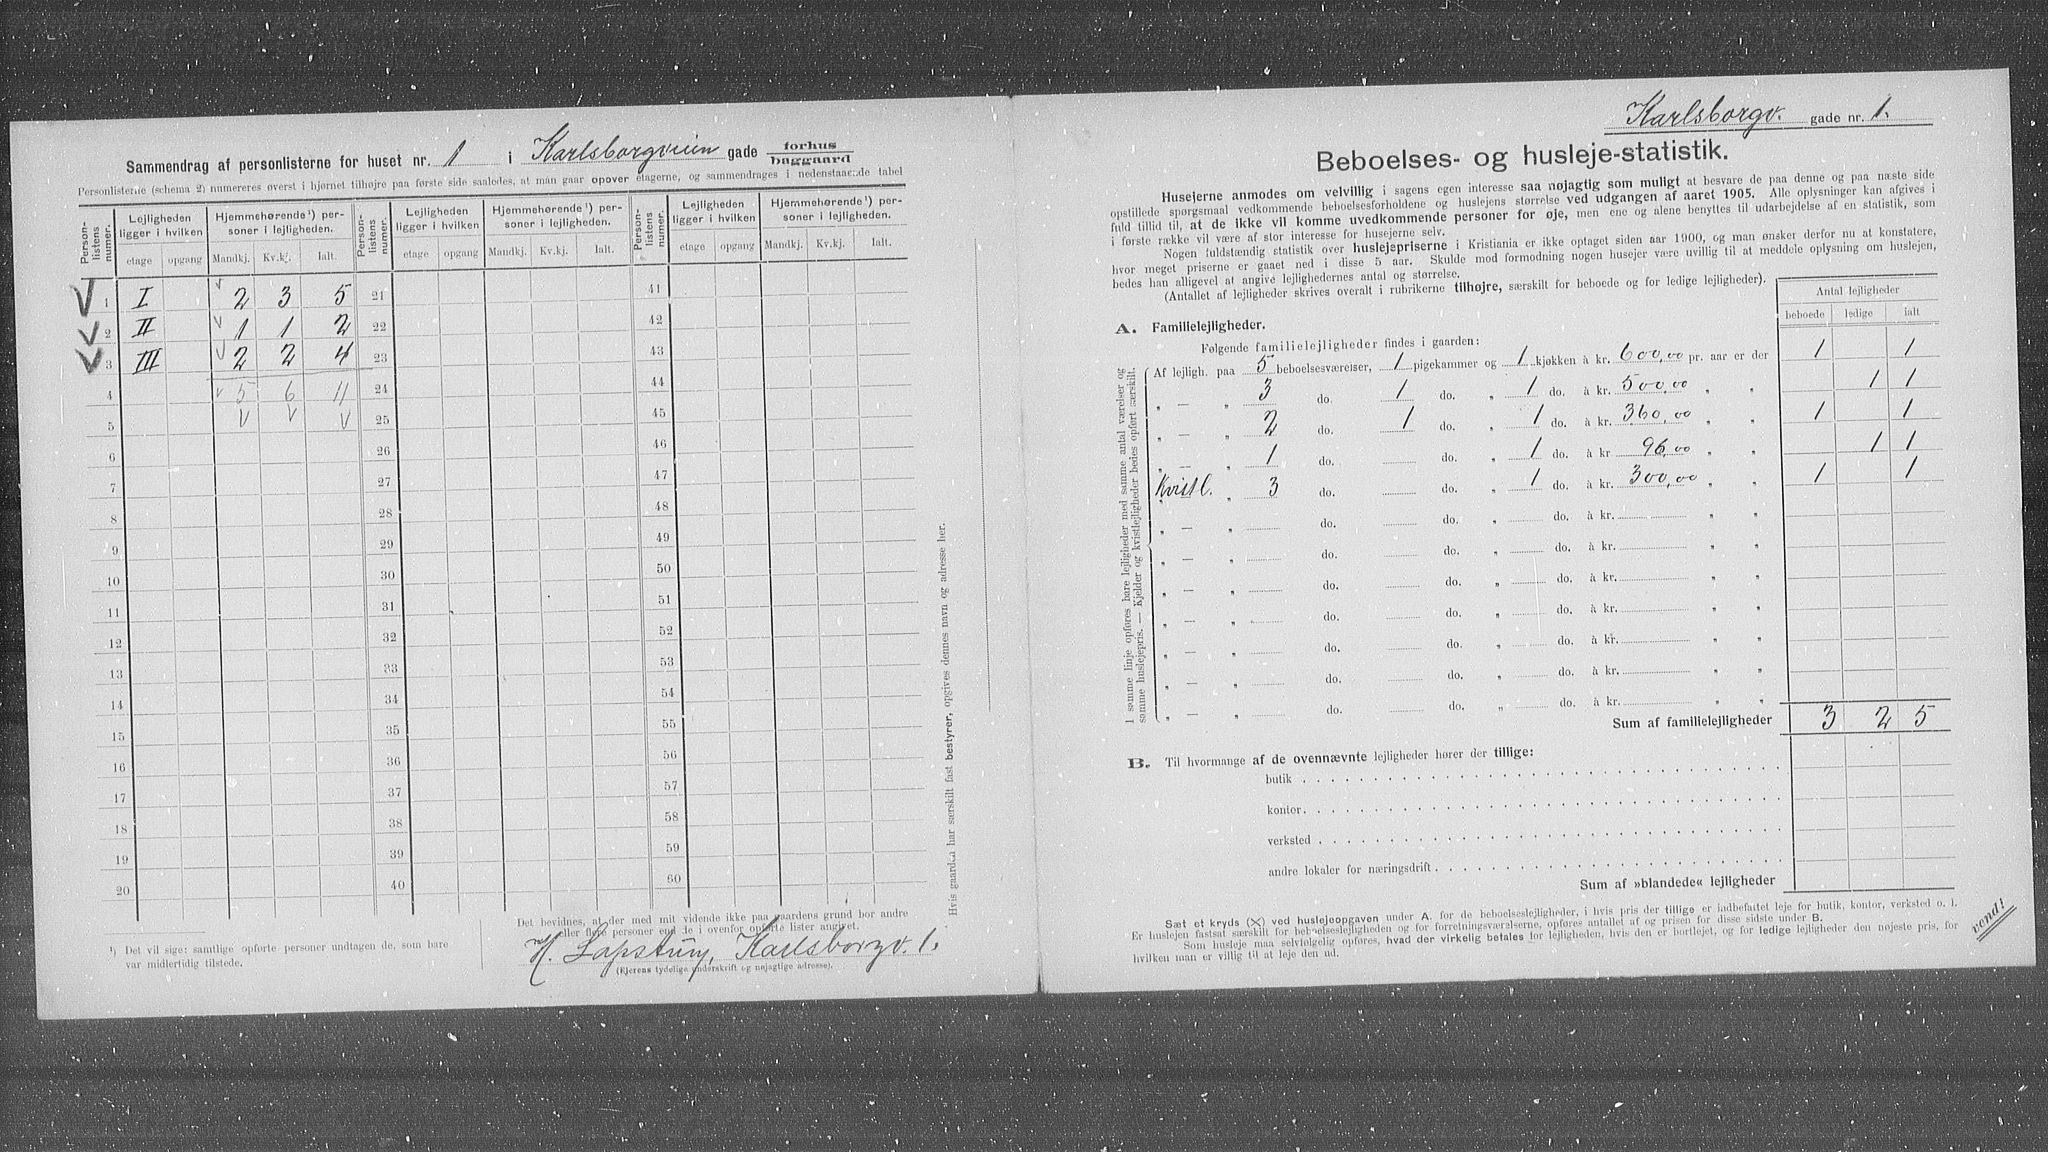 Sammendrag af personlisterne for huset nr. 1 i Karlsborgveien gade forhus baggaard
Personlisterne (schema 2) numereres øverst i hjørnet tilhøjre paa første side saaledes, at man gaar opover etagerne, og sammendrages i nedenstaaende tabel
Person-listens numer. Lejligheden ligger i hvilken Hjemmehørende¹) personer i lejligheden. Person-listens numer. Lejligheden ligger i hvilken Hjemmehørende¹) personer i lejligheden. Person-listens numer. Lejligheden ligger i hvilken Hjemmehørende¹) personer i lejligheden.
etage opgang Mandkj. Kv.kj. Ialt. etage opgang Mandkj. Kv.kj. Ialt. etage opgang Mandkj. Kv.kj. Ialt.
1 I 2 3 5 21 41
2 II 1 1 2 22 42
3 III 2 2 4 23 43
4 5 6 11 24 44
5 25 45
6 26 46
7 27 47
8 28 48
9 29 49
10 30 50
11 31 51
12 32 52
13 33 53
14 34 54
15 35 55
16 36 56
17 37 57
18 38 58
19 39 59
20 40 60
¹) Det vil sige: samtlige opførte personer undtagen de, som bare
var midlertidig tilstede.
Det bevidnes, at der med mit vidende ikke paa gaardens grund bor andre
eller flere personer end de i ovenfor opførte lister angivet.
H. Lapstuny, Karlsborgv. 1.
(Ejerens tydelige underskrift og nøjagtige adresse).
Hvis gaarden har særskilt fast bestyrer, opgives dennes navn og adresse her.
Karlsborgv. gade nr. 1.
Beboelses- og husleje-statistik.
Husejerne anmodes om velvillig i sagens egen interesse saa nøjagtig som muligt at besvare de paa denne og paa næste side
opstillede spørgsmaal vedkommende beboelsesforholdene og huslejens størrelse ved udgangen af aaret 1905. Alle oplysninger kan afgives i
fuld tillid til, at de ikke vil komme uvedkommende personer for øje, men ene og alene benyttes til udarbejdelse af en statistik, som
i første række vil være af stor interesse for husejerne selv.
Nogen fuldstændig statistik over huslejepriserne i Kristiania er ikke optaget siden aar 1900, og man ønsker derfor nu at konstatere,
hvor meget priserne er gaaet ned i disse 5 aar. Skulde mod formodning nogen husejer være uvillig til at meddele oplysning om huslejen,
bedes han alligevel at angive lejlighedernes antal og størrelse.
(Antallet af lejligheder skrives overalt i rubrikerne tilhøjre, særskilt for beboede og for ledige lejligheder).
Antal lejligheder
beboede ledige ialt
A. Familielejligheder.
Følgende familielejligheder findes i gaarden:
Af lejligh. paa 5 beboelsesværelser, 1 pigekammer og 1 kjøkken à kr. 600,00 pr. aar er der 1 1
„ — „ 3 do. 1 do. „ 1 do. à kr. 500,00 „ „ 1 1
„ — „ 2 do. 1 do. „ 1 do. à kr. 360,00 „ „ 1 1
„ — „ 1 do. do. „ 1 do. à kr 96,00 „ „ 1 1
Kvistl. „ 3 do. do. „ 1 do. à kr. 300,00 „ „ 1 1
„ — „ do. do. „ do. à kr. „ „
„ — „ do. do. „ do. à kr. „ „
„ — „ do. do. „ do. à kr. „ „
„ — „ do. do. „ do. à kr. „ „
„ — „ do. do. „ do. à kr. „ „
„ — „ do. do. „ do. à kr. „ „
„ — „ do. do. „ do. à kr. „ „
I samme linje opføres bare lejligheder med samme antal værelser og
samme huslejepris. — Kjelder og kvistlejligheder bedes opført særskilt.
Sum af familielejligheder 3 2 5
B. Til hvormange af de ovennævnte lejligheder hører der tillige:
butik
kontor
verksted
andre lokaler for næringsdrift
Sum af »blandede« lejligheder
Sæt et kryds (X) ved huslejeopgaven under A. for de beboelseslejligheder, i hvis pris der tillige er indbefattet leje for butik, kontor, verksted o. l.
Er huslejen fastsat særskilt for beboelseslejligheden og for forretningsværelserne, opføres antallet af og prisen for disse sidste under B.
Som husleje maa selvfølgelig opføres, hvad der virkelig betales for lejligheden, hvis den er bortlejet, og for ledige lejligheder den nøjeste pris, for
hvilken man er villig til at leje den ud.
vend!